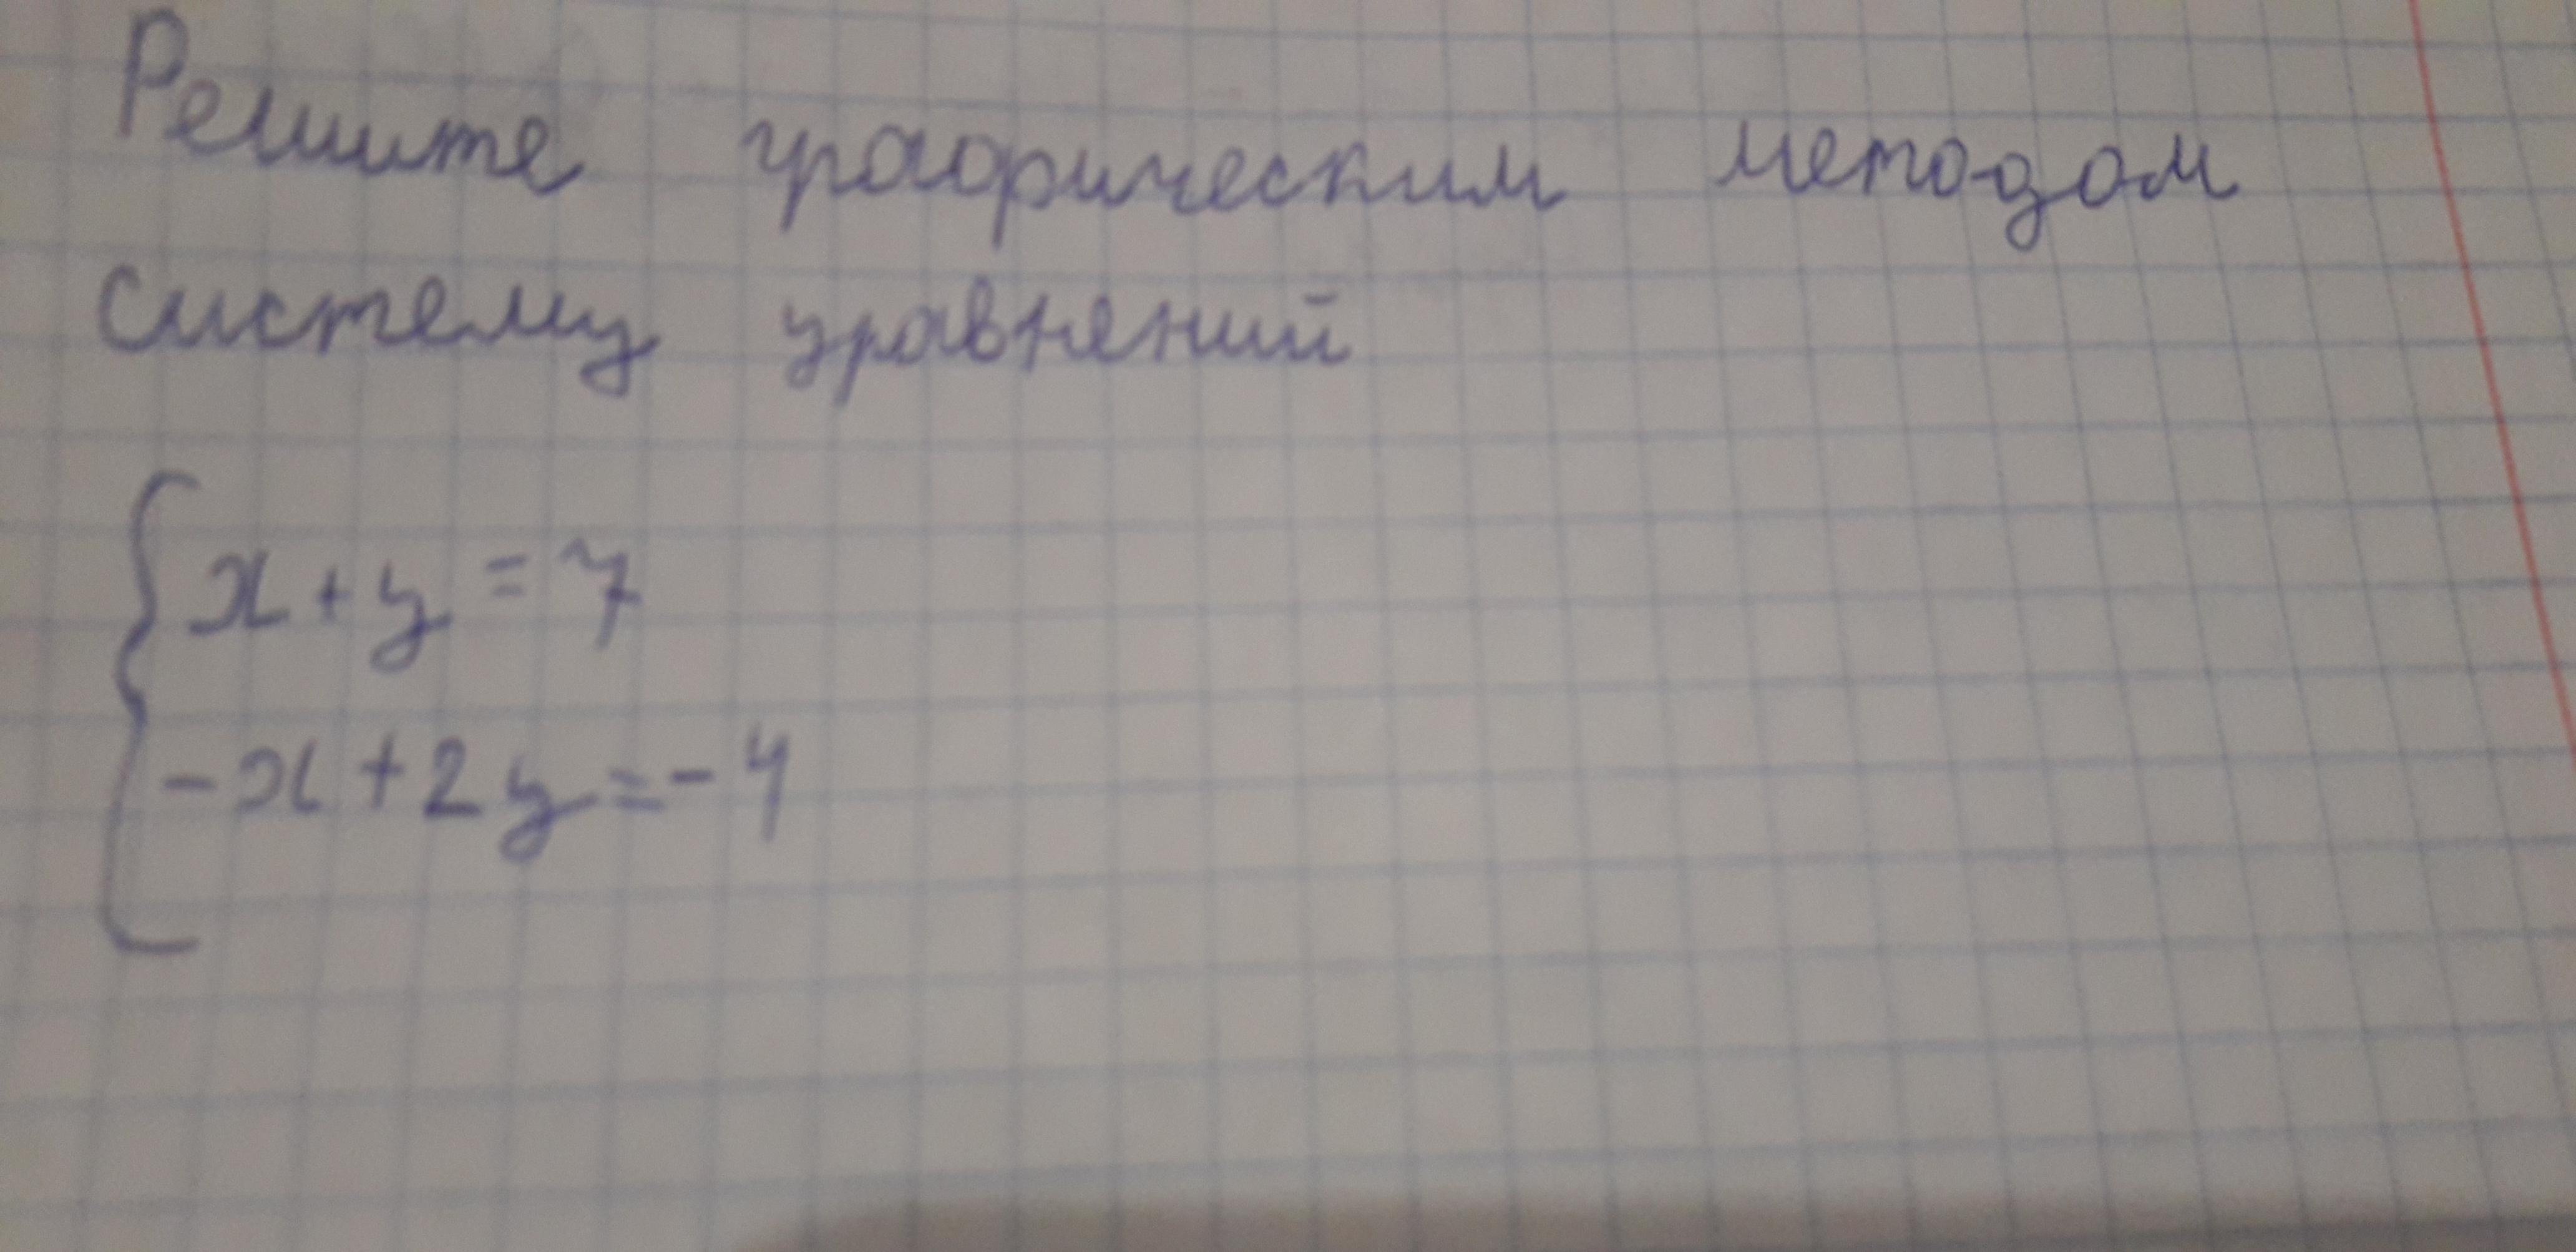 Решите графическим методом
систему уравнений
x + y = 7
-x + 2y = -4